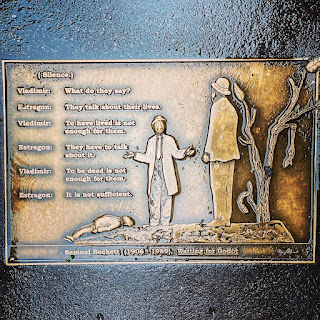 ( Silence.)
Vladimir: What do they say?
Estragon: They talk about their lives.
Vladimir: To have lived is not
enough for them.
Estragon: They have to talk
about it.
Vladimir: To be dead is not
enough for them.
Estragon: It is not sufficient.
Samuel Beckett (1906 - 1989), Waiting for Godot